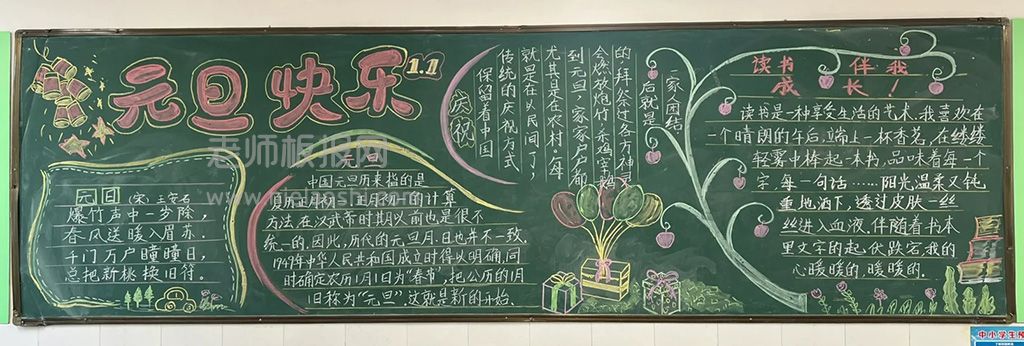 元旦快乐 1.1
老师板报网
元旦
(宋)王安石
爆竹声中一岁除,
春风送暖入眉苏.
千门万户瞳瞳日,
总把新桃换旧符.
元旦
中国元旦历来指的是
夏历正月初一.正月初一的计算
方法,在汉武帝时期以前也是很不
统一的,因此,历代的元旦月,日也并不一致.
1949年中华人民共和国成立时得以明确,同
时确定农历1月1日为“春节”,把公历的1月
1日称为“元旦”这就是新的开始.
庆祝
保留着中国
传统的庆祝方式
就是在以民间了,
尤其是在农村,每
到元旦,家家户户都
会燃放炮竹,杀鸡宰鹅
的,拜祭过各方神灵
后就是一
家人团结
读书伴我
成长!
读书是一种享受生活的艺术.我喜欢在
一个晴朗的午后,端上一杯香茗,在缕缕
轻雾中捧起一本书,品味着每一个
字,每一句话……阳光温柔又钝
重地洒下,透过皮肤一丝
丝进入血液,伴随着书本
里文字的起伏跌宕我的
心暖暖的.暖暖的.
中小学生预